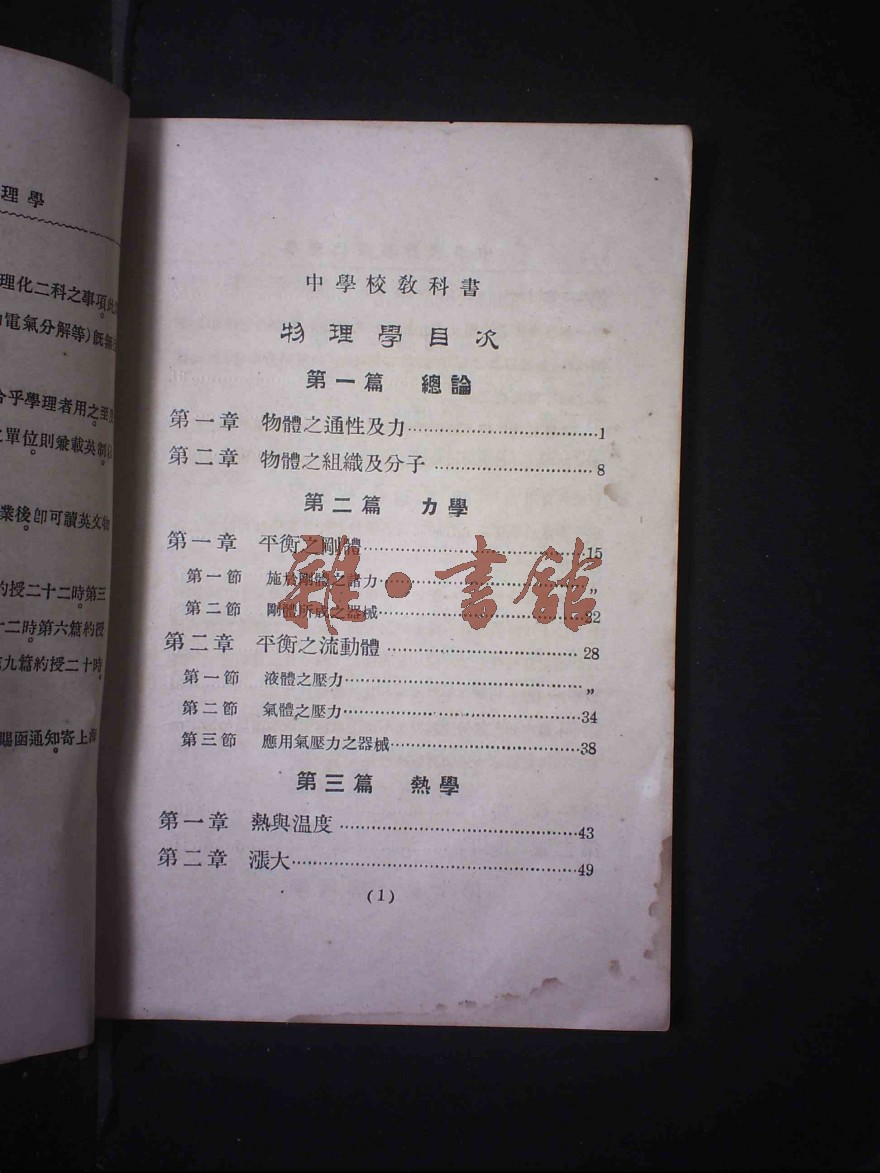 中學校敎科書
物理學目次
第一篇 總論
第一章 物體之通性及力……………………………1
第二章 物體之組織及分子……………………………8
第二篇 力學
第一章 平衡之剛體……………………………15
第一節 施於剛體之諸力……………………………〃
第二節 剛體所成之器械……………………………22
第二章 平衡之流動體……………………………28
第一節 液體之壓力……………………………〃
第二節 氣體之壓力……………………………34
第三節 應用氣壓力之器械……………………………38
第三篇 熱學
第一章 熱與温度……………………………43
第二章 漲大……………………………49
(1)
雜·書館
理學
理化二科之事項
電氣分解等)旣無
合乎學理者用之至
單位則兼載英制
業後卽可讀英文
約授二十二時第三
十二時第六篇約授
九篇約授二十時
賜函通知寄上海